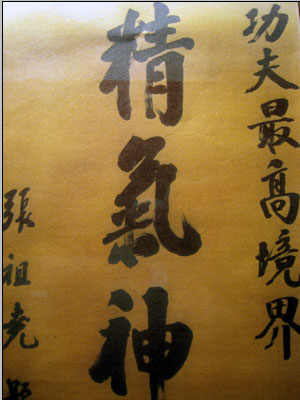 功夫最高境界
精氣神
張祖堯題